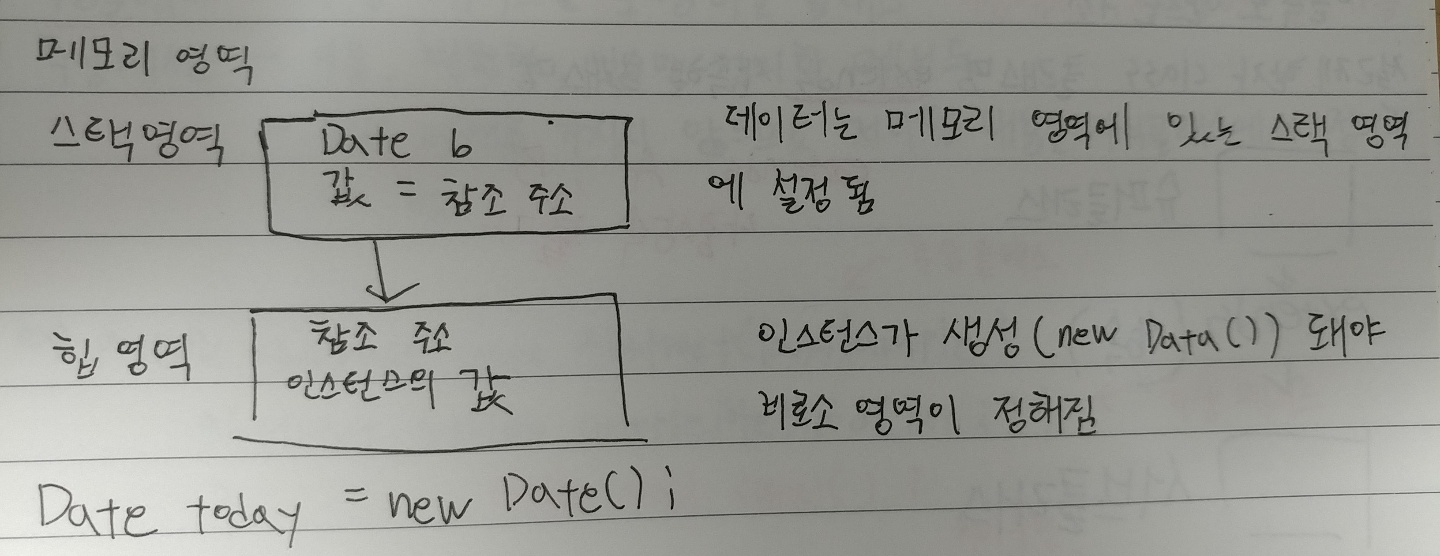 메모리 영역
스택영역
Date b
값 = 참조 주소
데이터는 메모리 영역에 있는 스택 영역
에 설정 됨
힙 영역
참조 주소
인스턴스의 값
인스턴스가 생성(new Data()) 돼야
비로소 영역이 정해짐
Date today = new Date();